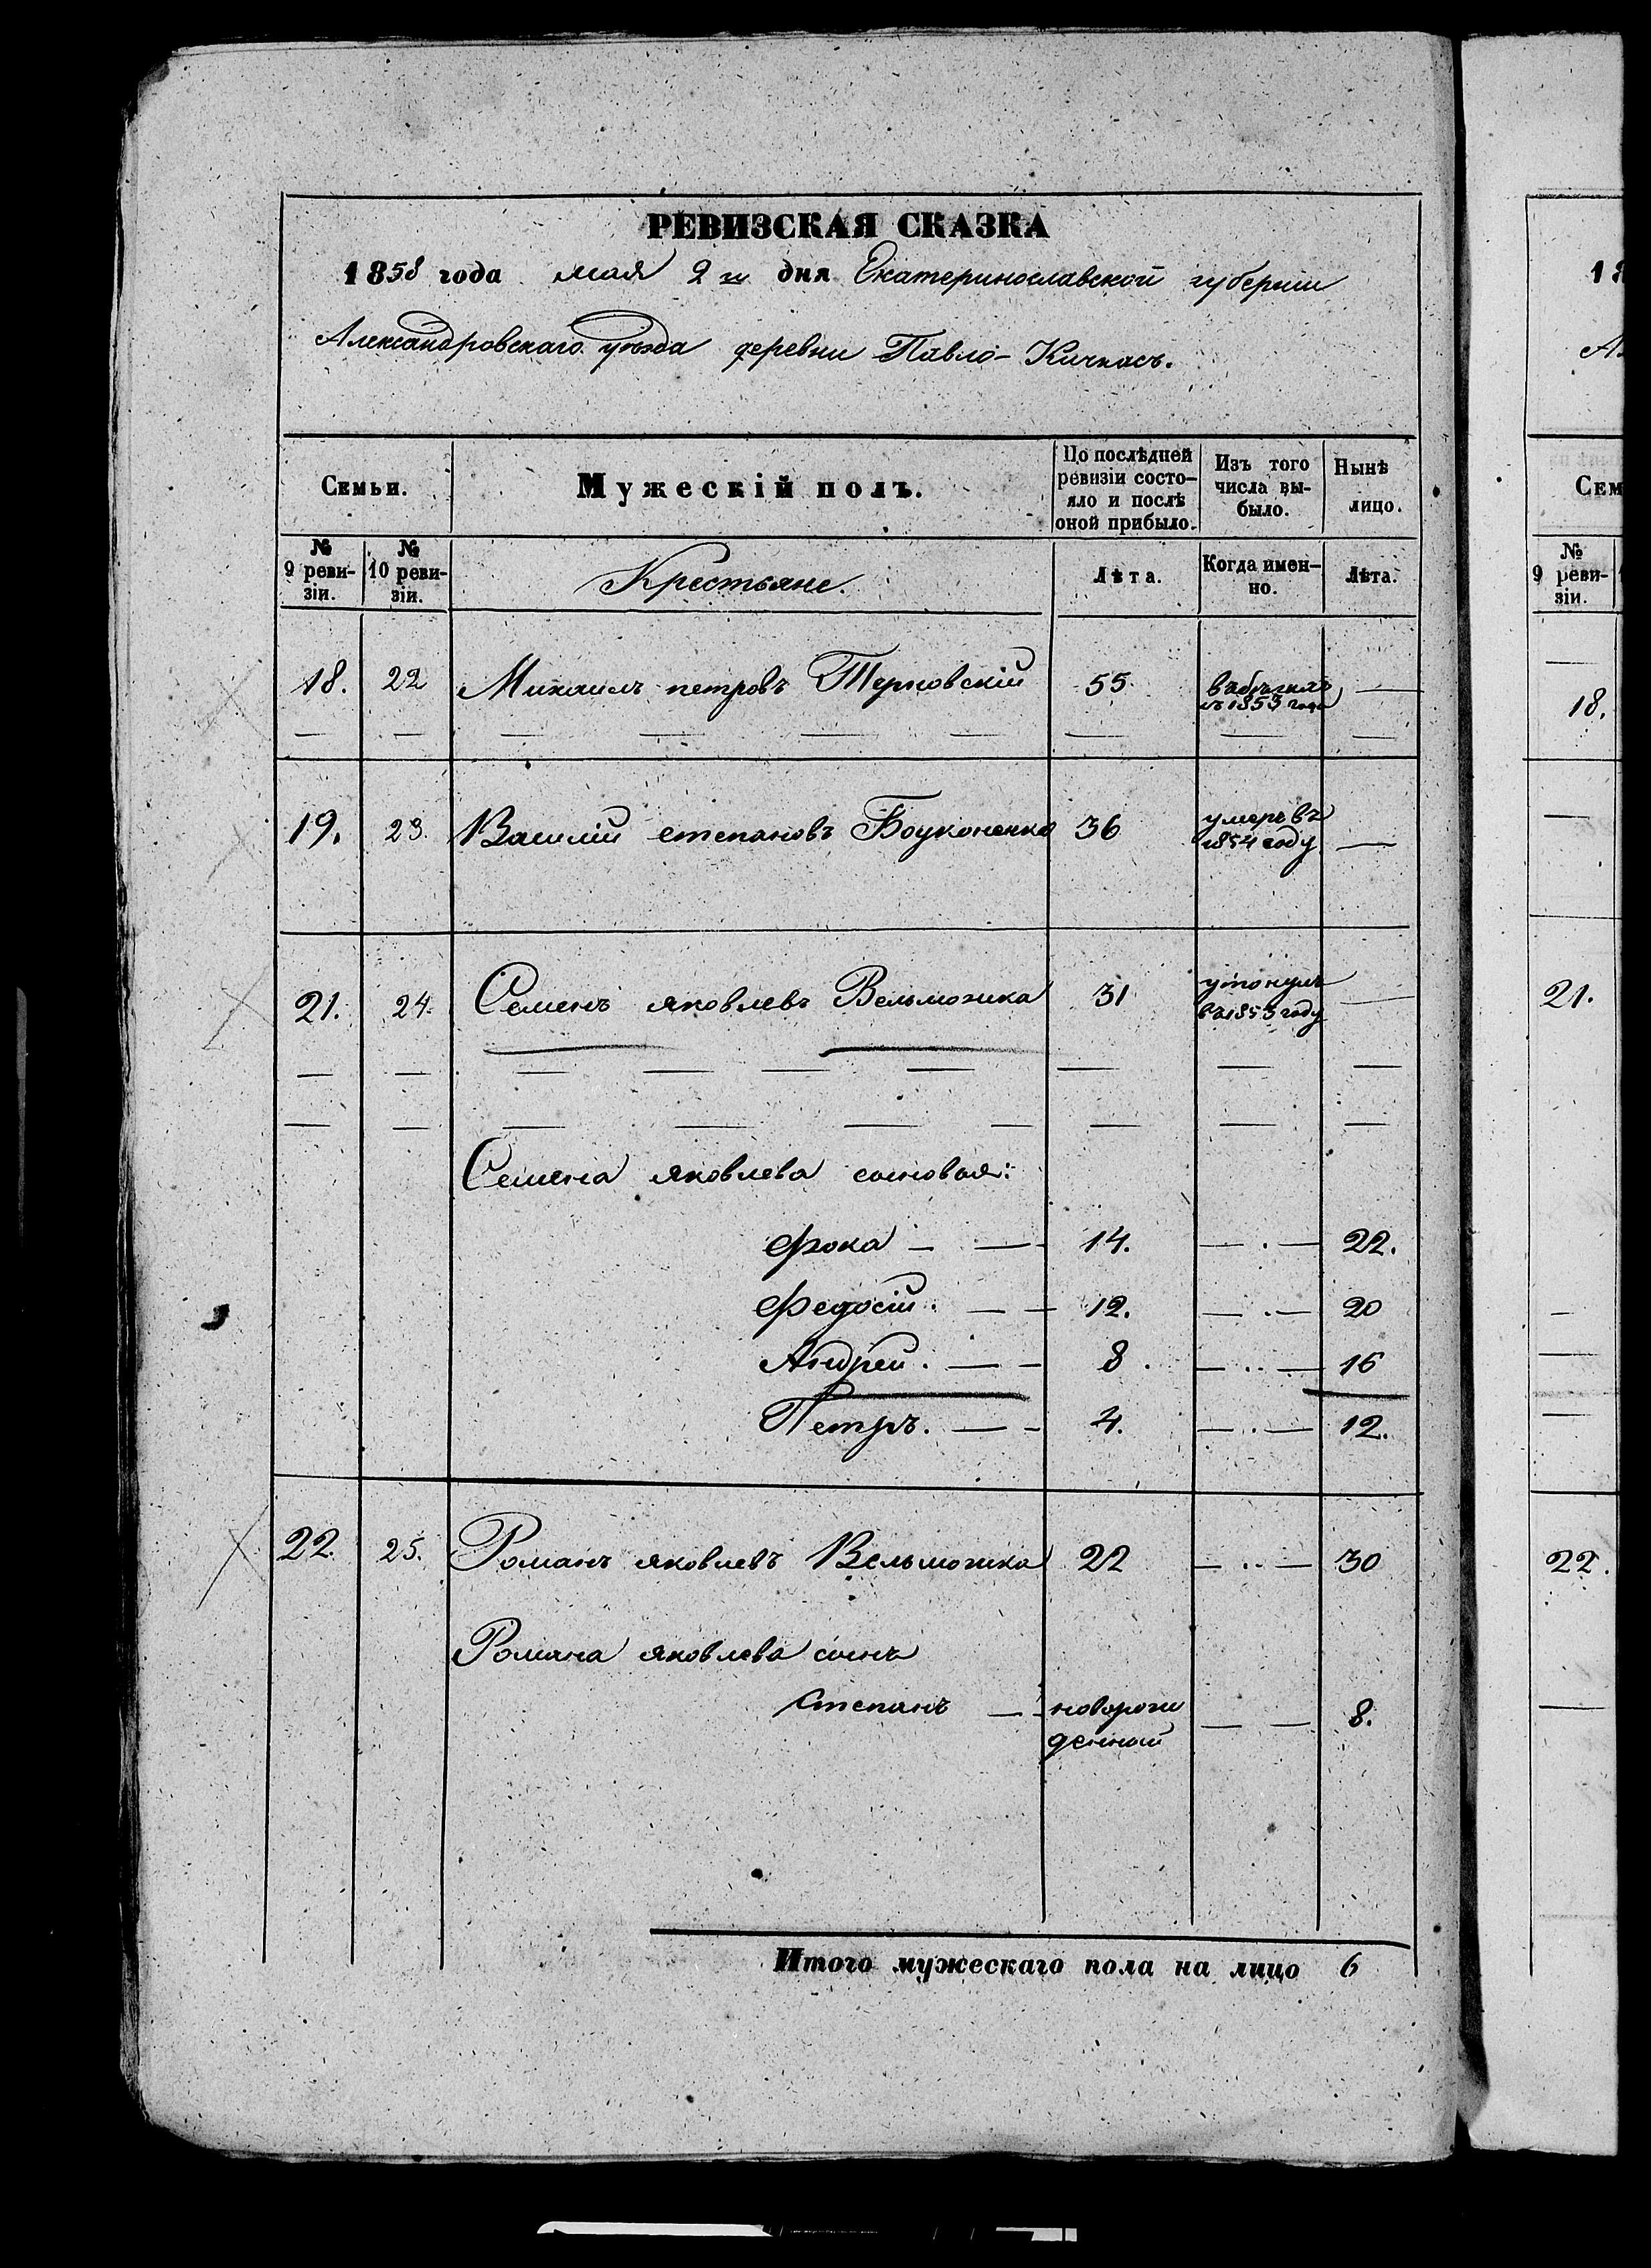 РЕВИЗСКАЯ СКАЗКА
1858 года мая 2го дня Екатеринославской губернии
Александровскаго уѣзда деревни Павло-Кичкасъ.
Семьи. Мужескій полъ. По послѣдней ревизіи состо-яло и послѣ оной прибыло. Изъ того числа вы-было. Нынѣ лицо.
№ 9 реви-зіи. № 10 реви-зіи. Крестьяне. Лѣта. Когда имен-но. Лѣта.
18. 22 Михаилъ петровъ Терновскій 55 — съ 1853 года —
19. 23. Василій степановъ 36 умеръ въ 1854 году —
21. 24. Семенъ яковлевъ Вельможка 31 утонулъ въ 1853 году —
Семена яковлева сыновья:
Фока — — 14. — . — 22.
Федосій. — — 12. — . — 20
Андрей. — — 8. — .. — 16
Петръ. — — 4. — .. — 12.
22. 25. Романъ яковлевъ Вельможка 22 — .. — 30
Романа яковлева сынъ
Степанъ — новорож
денный — — 8.
Итого мужескаго пола на лицо 6
18
А
Сем
№
9 реви-
зіи.
18.
21.
22.